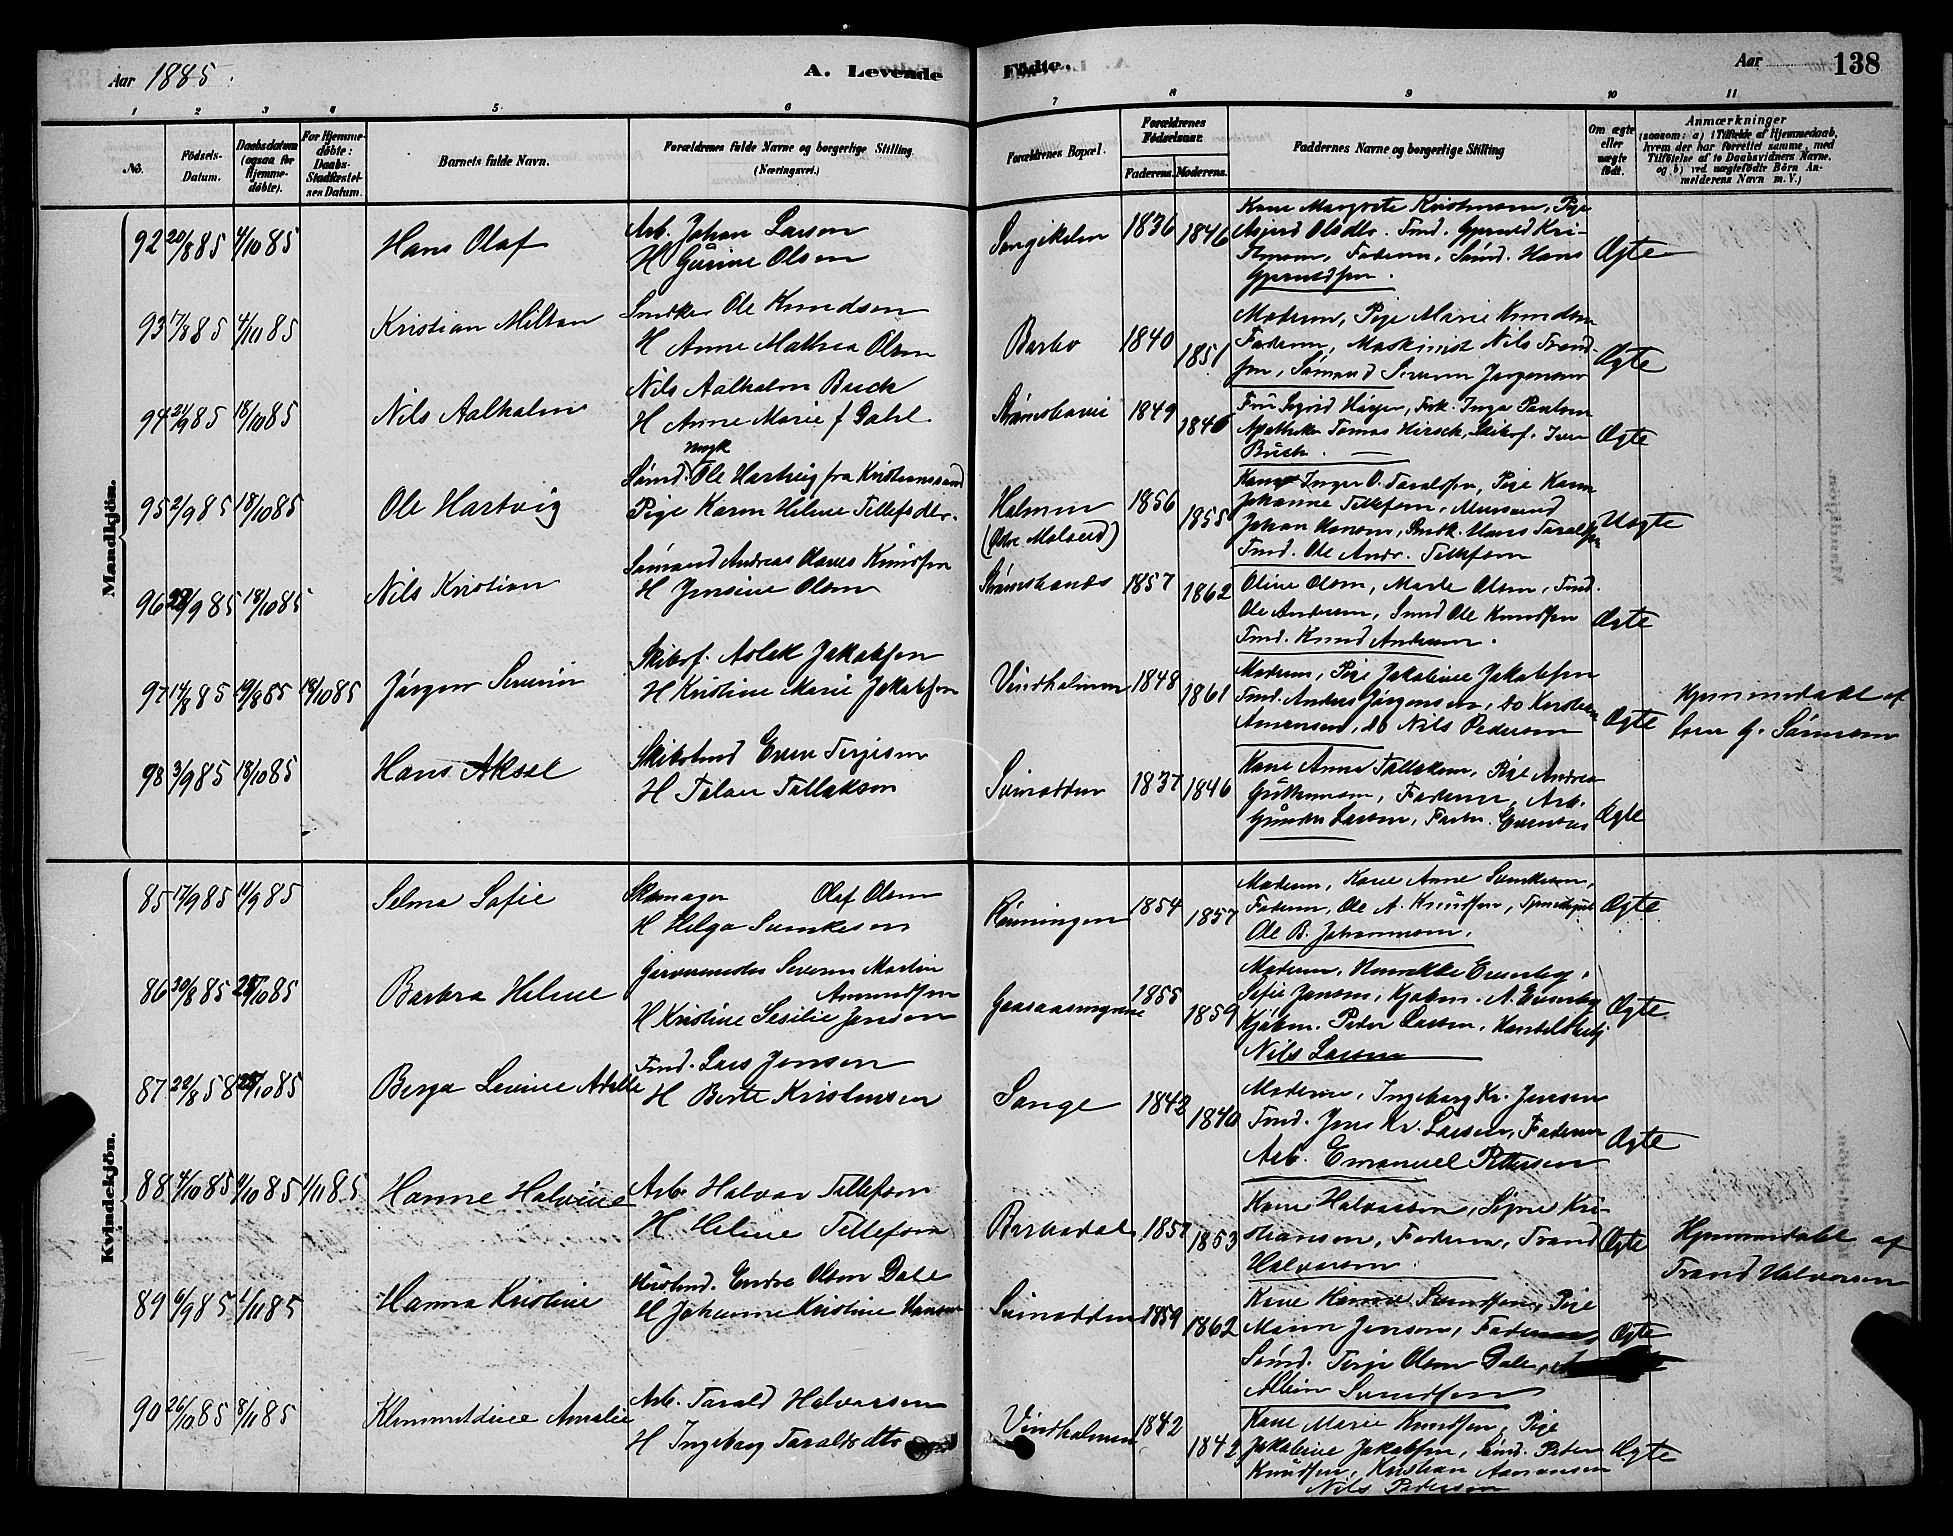 Aar 1885. A. Levende Fødte. Aar 138
1 2 3 4 5 6 7 8 9 10 11
No.
Fødsels-Datum.
Daabsdatum (ogsaa for Hjemmedøbte).
For Hjemmedøbte: Daabs-Stadfæstelses Datum.
Barnets fulde Navn.
Forældrenes fulde Navne og borgerlige Stilling (Næringsvei.)
Forældrenes Bopæl.
Forældrenes Fødselsaar.
Faderens. Moderens.
Faddernes Navne og borgerlige Stilling
Om ægte eller uægte født.
Anmærkninger
(saasom: a) i Tilfælde af Hjemmedaab, hvem der har forrettet samme, med Tilføielse af to Daabsvidners Navne, og b) ved uægtefødte Børn Anmelderens Navn m. V.)
Mandkjøn.
92 20/8 85 4/10 85 Hans Olaf
Arb. Johan Larsen
H Gurine Olsen
Songekilen 1836 1846
Kone Margrete Kristensen, Pige
Fadderen, Sømd. Hans
Ægte
93 17/8 85 4/11 85 Kristian Milton
Snedker Ole Knudsen
H Anne Mathea Olsen
Barbo 1840 1851
Moderen, Pige Marie Knudsen
Faderen, Maskinist Nils Trondsen, Sømand Severin Jørgensen
Ægte
94 21/9 85 18/10 85 Nils Aalholm
Nils Aalholm Buch
H Anne Marie f Dahl
1849 1846
Fru Sigrid Frk. Inga Paulsen
Apotheker Tomas Hirsch, Skibsf. Iver
Buch.
Ægte
95 2/9 85 18/10 85 Ole Hartvig
Sømd. Ole Hartvig fra Kristianssand
Pige Karen Helene Tellefsdtr.
Holmen
(Østre Moland)
1856 1855
Kone Inger O. Taraldsen, Pige Karen
Johanne Tellefsen, Mursvend
Johan Hansen, Snedk. Hans Taraldsen
Tmd. Ole Andr. Tellefsen
Uægte
96 9 85 18/10 85 Nils Kristian
Sømand Andreas Olaves Knudsen
H Jensine Olsen
1857 1862
Oline Olsen, Marte Olsen, Tmd.
Ole Andersen, Smd Ole Knudsen
Tmd. Knud Andersen.
Ægte
97 14/8 85 19/8 85 18/10 85 Jørgen Severin
Skibsf. Aslak Jakobsen
H Kristine Marie Jakobsen
Vindholmen 1848 1861
Moderen, Pige Jakobine Jakobsen
Tmd. Anders Jørgensen, do Kristian
Aanonsen, do Nils Pedersen
Ægte
Hjemmedøbt af
98 3/9 85 18/10 85 Hans Aksel
Skibstmd Even Terjesen
H Toline Tallaksen
Suinodden 1837 1846
Kone Anne Tallaksen, Pige Andrea
Guttormsen, Faderen, Arb.
Gunder Larsen,
Ægte
Kvindekjøn.
85 17/9 85 11/9 85 Selma Sofie
Skomager Olaf Olsen
H Helga Svenkesen
1854 1857
Moderen, Kone Anne Svenkesen,
Faderen, Ole A. Knudsen,
Ole B. Johannesen.
Ægte
86 30/8 85 25/10 85 Barbra Helene
Garversvend Severin Martin
Amundsen
H Kristine Sesilie Jensen
1855 1859
Moderen,
Sofie Jensen, Kjøbm. A.
Kjøbm. Peder Larsen,
Nils Larsen
Ægte
87 22/8 58 25/10 85 Berga Levine Adelle
Tmd. Lars Jensen
H Berte Kristensen
Songe 1842 1840
Moderen, Ingeborg Kr. Jensen
Tmd. Jens Kr. Larsen, Faderen
Arb. Emanuel Pettersen
Ægte
88 4/10 85 9/10 85 1/11 85 Hanne Halvine
Arb. Halvor Tellefsen
H Helene Tellefsen
Barbodal 1857 1853
Kone Halvorsen, Signe Kristiansen, Faderen, Trond
Halvorsen.
Ægte
Hjemmedøbt af
Trond Halvorsen
89 6/9 85 1/11 85 Hanna Kristine
Huustmd. Endre Olsen Dale
H Johanne Kristine Hansen
Suinodden 1859 1862
Kone Hanne Pige
Maren Jensen, Faderen,
Sømd. Terje Olsen Dale,
Ægte
90 26/10 85 8/11 85 Klemmetdine Amalie
Arb. Tarald Halvorsen
H Ingeborg Taraldsdtr
Vindholmen 1842 1842
Kone Marie Knudsen, Pige
Jakobine Jakobsen, Sømd. Peder
Knudsen, Kristian Aanonsen
Nils Pedersen
Ægte